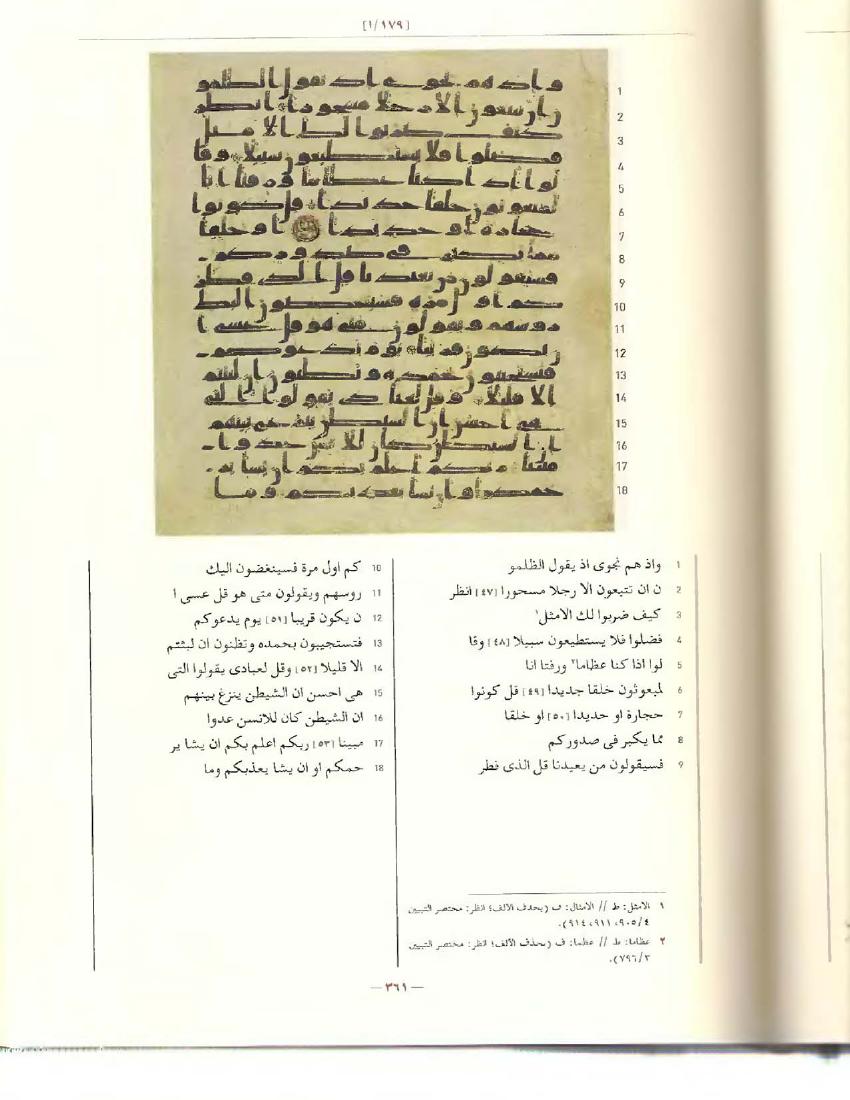 [١/١٧٩]
1
2
3
4
5
6
7
8
9
10
11
12
13
14
15
16
17
18
1 واذ هم نجوى اذ يقول الظلمو
2 ن ان تتبعون الا رجلا مسحورا [٤٧] انظر
3 كيف ضربوا لك الامثل١
4 فضلوا فلا يستطيعون سبيلا [٤٨] وقا
5 لوا اذا كنا عظاما٢ ورفتا انا
6 لمبعوثون خلقا جديدا [٤٩] قل كونوا
7 حجارة او حديدا [٥٠] او خلقا
8 مما يكبر فى صدوركم
9 فسيقولون من يعيدنا قل الذى فطر
10 كم اول مرة فسينغضون اليك
11 روسهم ويقولون متى هو قل عسى ا
12 ن يكون قريبا [٥١] يوم يدعوكم
13 فتستجيبون بحمده وتظنون ان لبثتم
14 الا قليلا [٥٢] وقل لعبادى يقولوا التى
15 هى احسن ان الشيطن ينزغ بينهم
16 ان الشيطن كان للانسن عدوا
17 مبينا [٥٣] ربكم اعلم بكم ان يشا ير
18 حمكم او ان يشا يعذبكم وما
١ الامثل: ط // الامثال: ف (بحذف الالف؛ انظر: مختصر التبيين
٤/٩٠٥، ٩١١، ٩١٤).
٢ عظاما: ط // عظما: ف (بحذف الالف؛ انظر: مختصر التبيين
٣/٧٩٦).
— ٣٦١ —